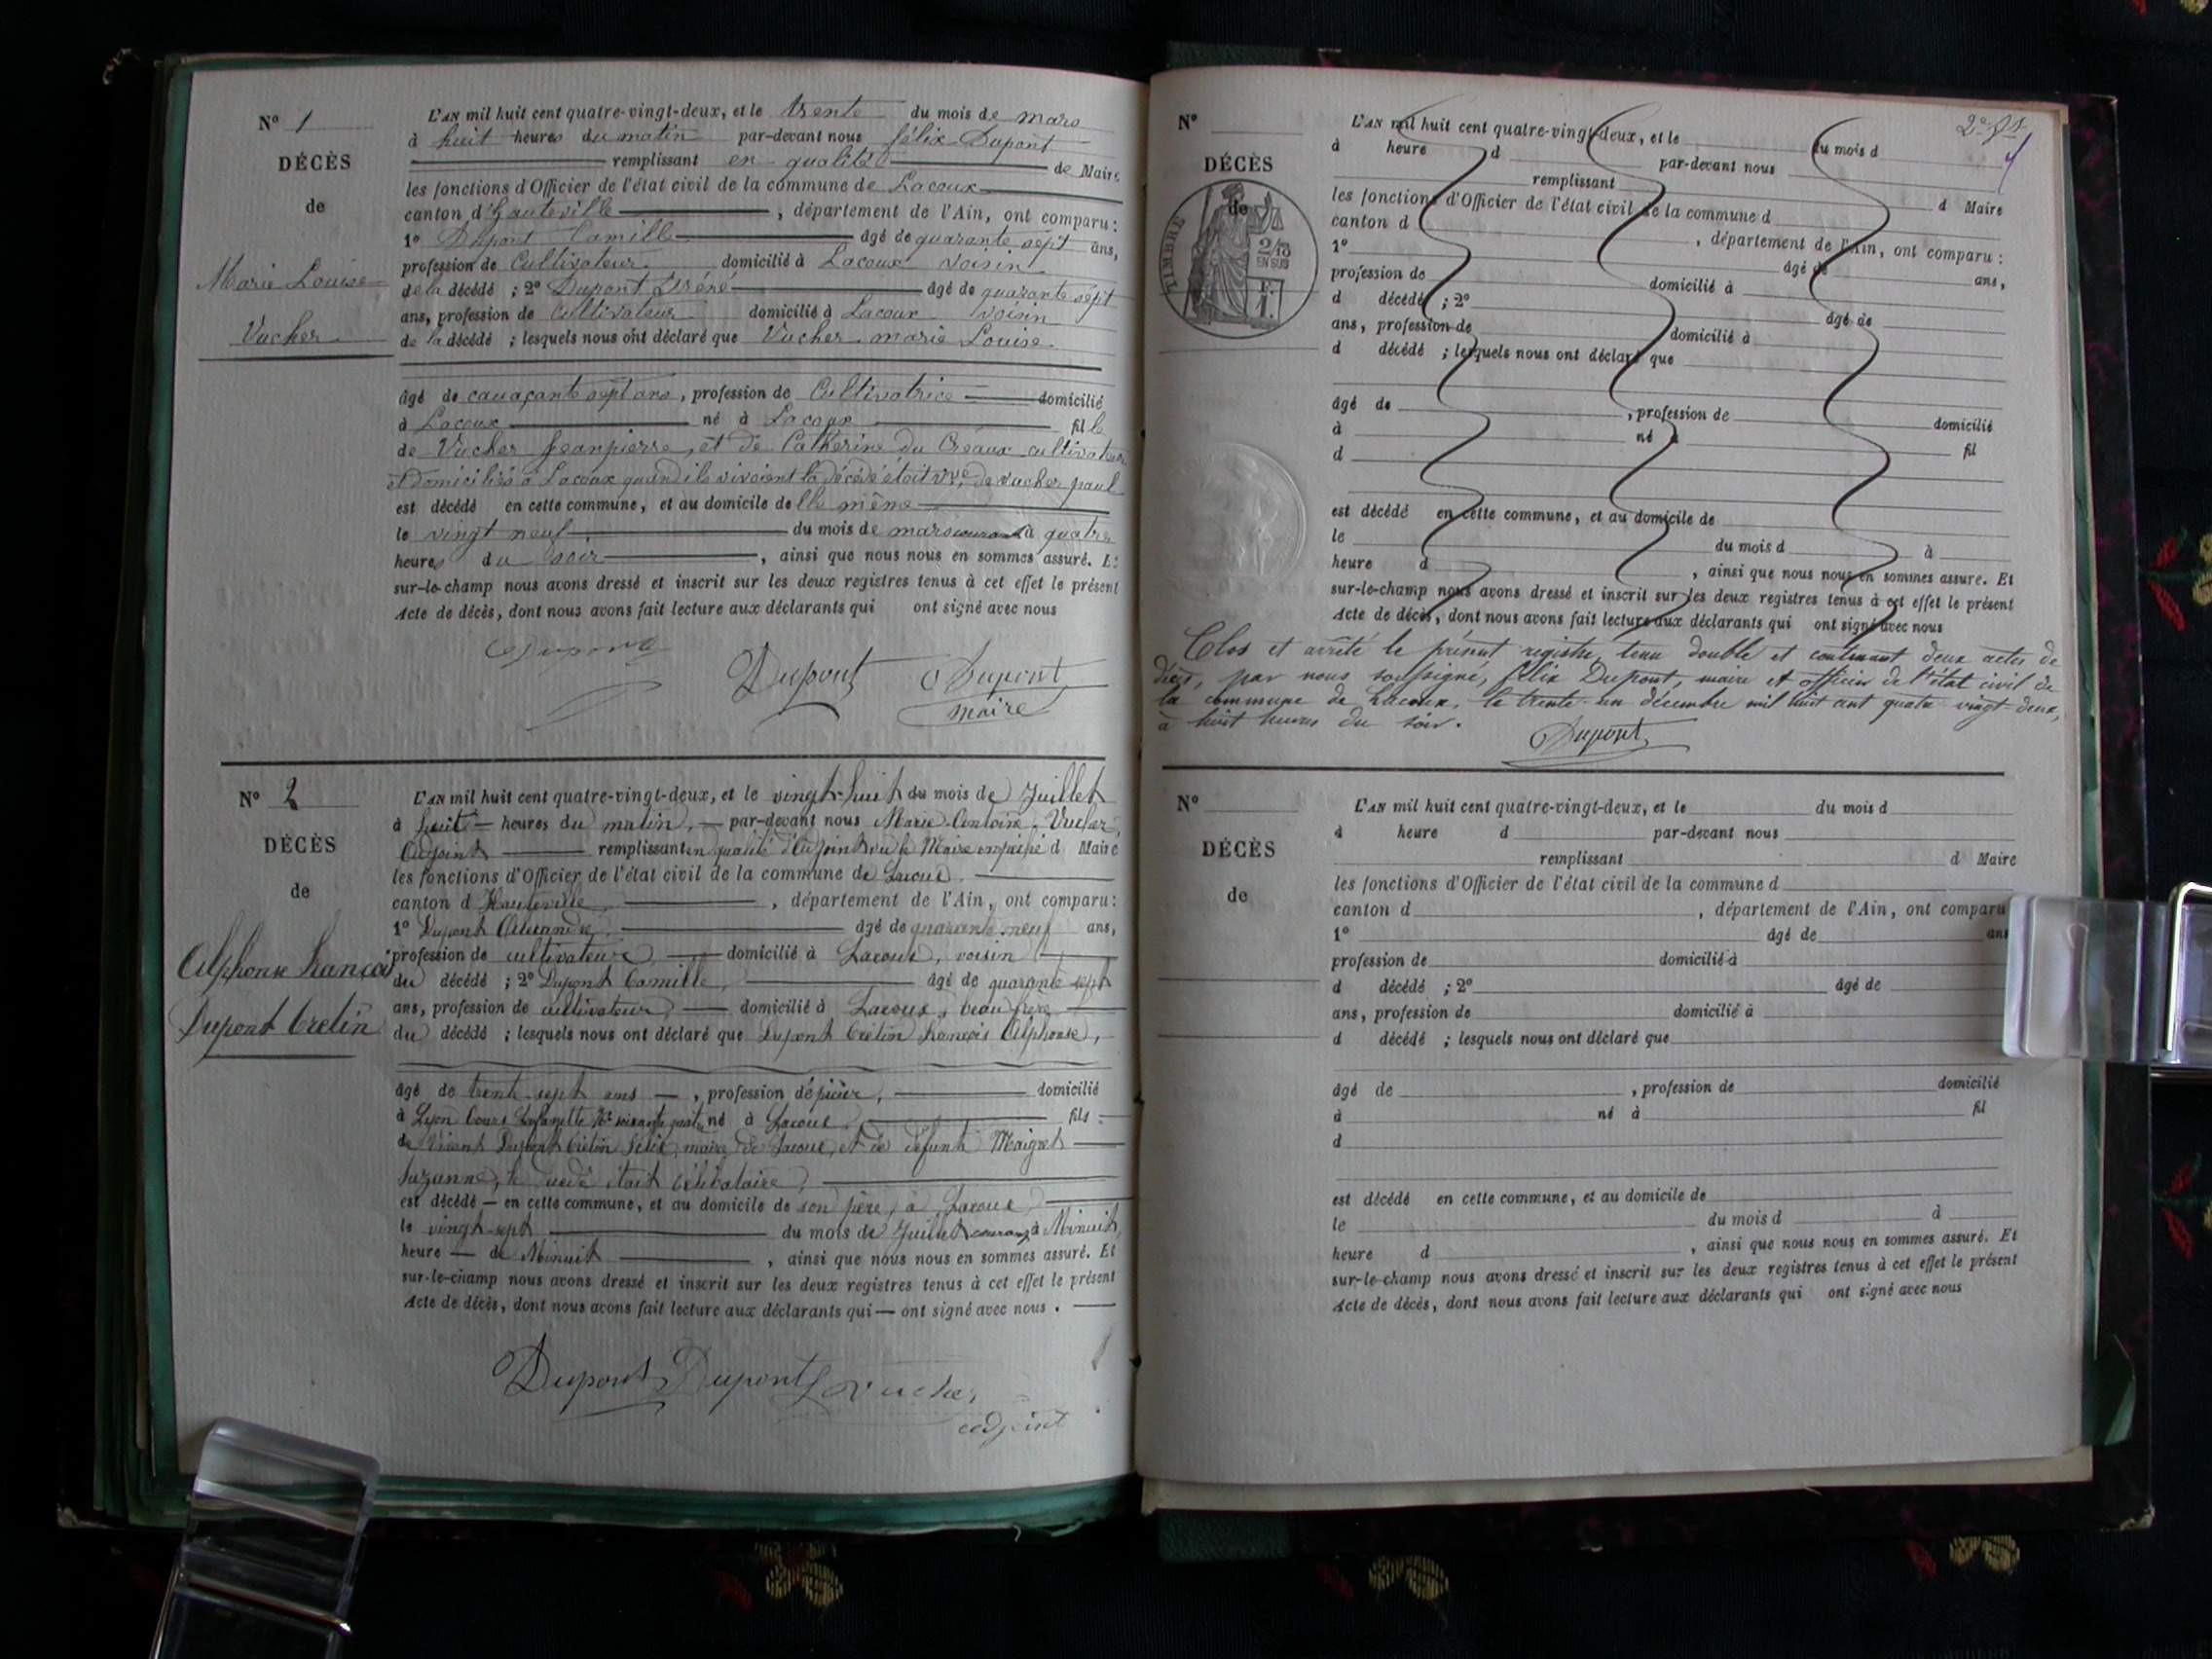 N° 1
DÉCÈS
de
Marie Louise
Vucher
L'AN mil huit cent quatre-vingt-deux, et le trente du mois de mars
à huit heures du matin par-devant nous félix Dupont
remplissant en qualité de Maire
les fonctions d'Officier de l'état civil de la commune de Lacoux
canton d'hauteville, département de l'Ain, ont comparu :
1° Dupont Camille âgé de quarante sept ans,
profession de Cultivateur domicilié à Lacoux voisin
de la décédé ; 2° Dupont Déséré âgé de quarante sept
ans, profession de Cultivateur domicilié à Lacoux voisin
de la décédé ; lesquels nous ont déclaré que Vucher marie Louise.
âgé de sept ans, profession de Cultivatrice domicilié
à Lacoux né à Lacoux fille
de Vucher Jeanpierre, et de Catherine du Créaux cultivateurs
et domiciliés à Lacoux quand ils vivaient la décédé étoit vve de vucher paul
est décédé en cette commune, et au domicile de lle même
le vingt neuf du mois de mars courant à quatre
heures du soir, ainsi que nous nous en sommes assuré. Et
sur-le-champ nous avons dressé et inscrit sur les deux registres tenus à cet effet le présent
Acte de décès, dont nous avons fait lecture aux déclarants qui ont signé avec nous
Dupont Dupont Dupont
maire
N° 2
DÉCÈS
de
Alphonse françois
Dupont Cretin
L'AN mil huit cent quatre-vingt-deux, et le vingt-huit du mois de Juillet
à huit heures du matin, par-devant nous Marie Vucher,
Adjoint remplissant en qualité d'Adjoint vu le Maire empêché d Maire
les fonctions d'Officier de l'état civil de la commune de Lacoux
canton d Hauteville, département de l'Ain, ont comparu :
1° Dupont âgé de quarante-neuf ans,
profession de cultivateur domicilié à Lacoux, voisin
du décédé ; 2° Dupont Camille, âgé de quarante sept
ans, profession de cultivateur, domicilié à Lacoux, beau frère
du décédé ; lesquels nous ont déclaré que Dupont Crétin françois Alphonse,
âgé de trente-sept ans, profession d'épicier, domicilié
à Lyon Cours Lafayette N° soixante quatre né à Lacoux fils
de Vivant Dupont Crétin Félix, maire de Lacoux, et de défunte Maigret
Suzanne, le décédé était célibataire,
est décédé en cette commune, et au domicile de son père, à Lacoux
le vingt-sept du mois de Juillet courant à Minuit,
heure de Minuit, ainsi que nous nous en sommes assuré. Et
sur-le-champ nous avons dressé et inscrit sur les deux registres tenus à cet effet le présent
Acte de décès, dont nous avons fait lecture aux déclarants qui ont signé avec nous.
Dupont Dupont Vucher
adjoint
N°
DÉCÈS
de
TIMBRE
2/10
EN SUS
L'AN mil huit cent quatre-vingt-deux, et le du mois d
à heure d par-devant nous
remplissant d Maire
les fonctions d'Officier de l'état civil de la commune d
canton d, département de l'Ain, ont comparu :
1° âgé de ans,
profession de domicilié à
d décédé ; 2° âgé de
ans, profession de domicilié à
d décédé ; lesquels nous ont déclaré que
âgé de, profession de domicilié
à né à fil
d
est décédé en cette commune, et au domicile de
le du mois d à
heure d, ainsi que nous nous en sommes assuré. Et
sur-le-champ nous avons dressé et inscrit sur les deux registres tenus à cet effet le présent
Acte de décès, dont nous avons fait lecture aux déclarants qui ont signé avec nous
Clos et arrêté le présent registre, tenu double et contenant deux actes de
décès, par nous soussigné, félix Dupont, maire et officier de l'état civil de
la commune de Lacoux, le trente-un décembre mil huit cent quatre-vingt-deux,
à huit heures du soir.
Dupont
N°
DÉCÈS
de
L'AN mil huit cent quatre-vingt-deux, et le du mois d
à heure d par-devant nous
remplissant d Maire
les fonctions d'Officier de l'état civil de la commune d
canton d, département de l'Ain, ont comparu
1° âgé de ans
profession de domicilié à
d décédé ; 2° âgé de
ans, profession de domicilié à
d décédé ; lesquels nous ont déclaré que
âgé de, profession de domicilié
à né à fil
d
est décédé en cette commune, et au domicile de
le du mois d à
heure d, ainsi que nous nous en sommes assuré. Et
sur-le-champ nous avons dressé et inscrit sur les deux registres tenus à cet effet le présent
Acte de décès, dont nous avons fait lecture aux déclarants qui ont signé avec nous